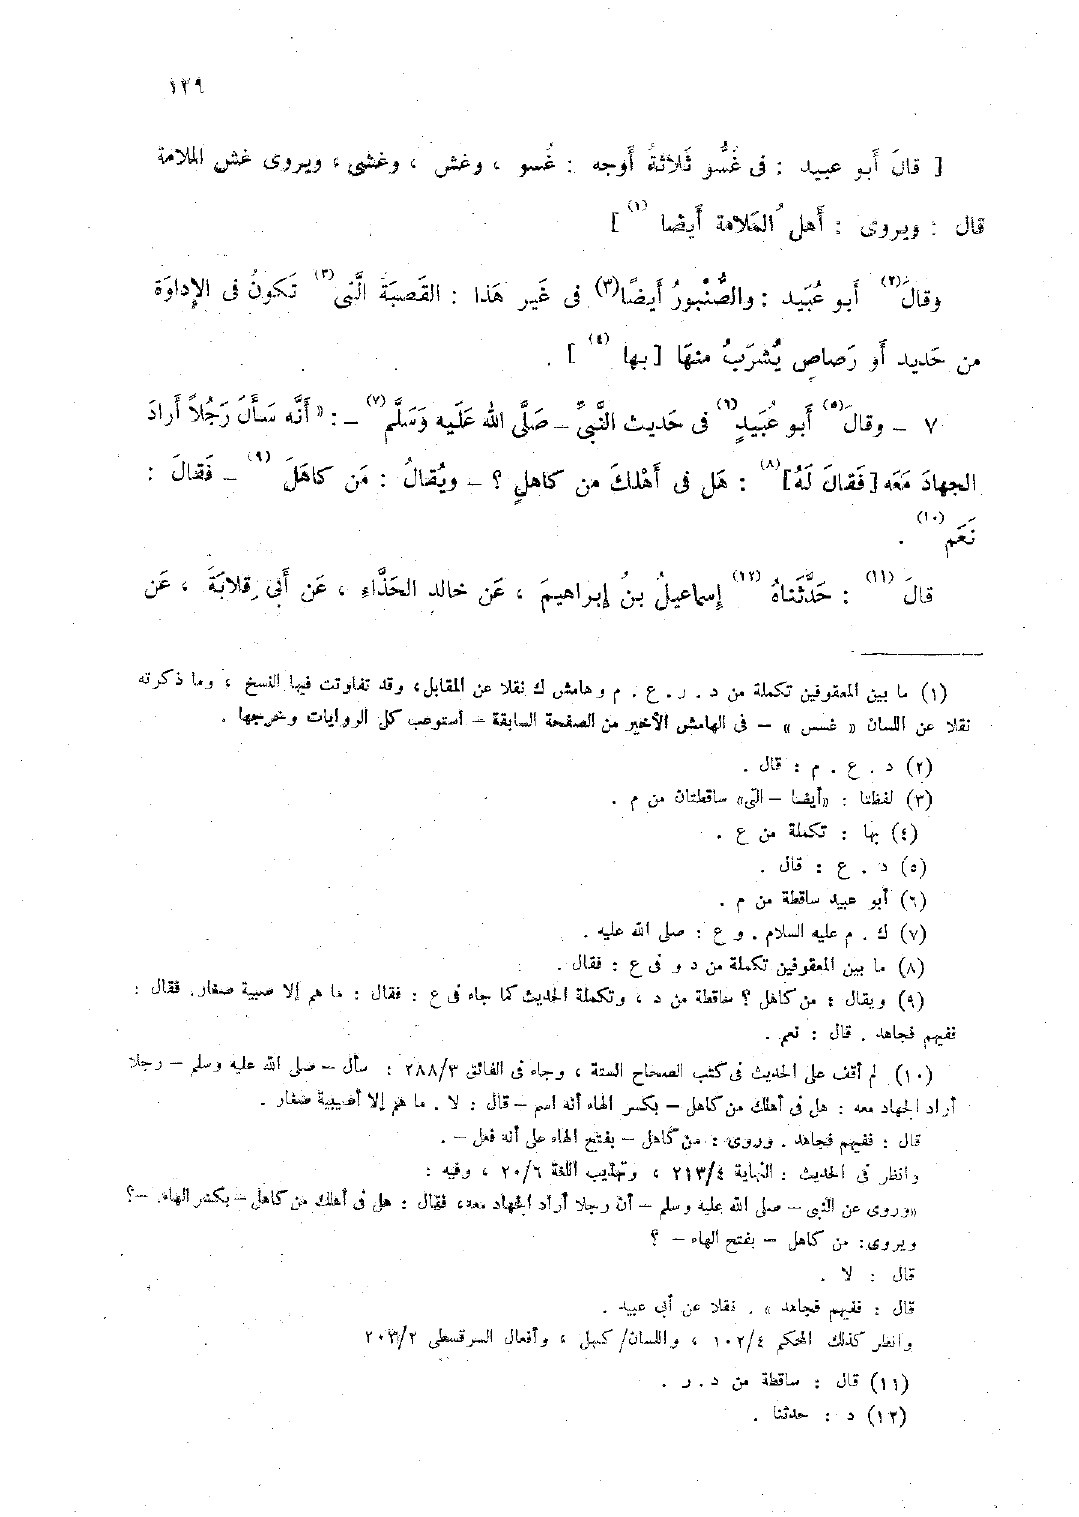 ١٣٩
[ قالَ أَبو عبيد : فى غُسُّو ثَلاثةُ أَوجه : غُسو ، وغش ، وغشى ، ويروى غش الملامة
قال : ويروى : أَهل المَلامة أَيضا (١) ]
وقالَ (٢) أَبو عُبَيد : والصُّنْبورُ أَيضًا (٣) فى غَير هَذا : القَصبَةَ الَّتى (٣) تَكونُ فى الإِداوَة
من حَديد أَو رَصاصٍ يُشرَبُ منهَا [ بها (٤) ] .
٧ – وقالَ (٥) أَبو عُبَيدٍ (٦) فى حَديث النَّبىِّ – صَلَّى الله عَلَيه وَسَلَّم (٧) – : « أَنَّه سَأَلَ رَجُلاً أَرادَ
الجهادَ مَعَه [ فَقالَ لَهُ ] (٨) : هَل فى أَهْلكَ من كاهلٍ ؟ – ويُقالُ : مَن كاهَلَ (٩) – فَقالَ :
نَعَم (١٠) .
قالَ (١١) : حَدَّثَناهُ (١٢) إِسماعيلُ بنُ إِبراهيمَ ، عَن خالد الحَذَّاءِ ، عَن أَبى قِلابَةَ ، عَن
(١) ما بين المعقوفين تكملة من د . ر . ع . م وهامش ك نقلا عن المقابل ، وقد تفاوتت فيها النسخ ، وما ذكرته
نقلا عن اللسان « غسس » – فى الهامش الأخير من الصفحة السابقة – استوعب كل الروايات وخرجها .
(٢) د . ع . م : قال .
(٣) لفظتا : « أيضا – التى » ساقطتان من م .
(٤) بها : تكملة من ع .
(٥) د . ع : قال .
(٦) أبو عبيد ساقطة من م .
(٧) ك . م عليه السلام . و ع : صلى الله عليه .
(٨) ما بين المعقوفين تكملة من د و فى ع : فقال .
(٩) ويقال : من كاهل ؟ ساقطة من د ، وتكملة الحديث كما جاء فى ع : فقال : ما هم إلا صبية صغار . فقال :
ففيهم فجاهد . قال : نعم .
(١٠) لم أقف على الحديث فى كتب الصحاح الستة ، وجاء فى الفائق ٢٨٨/٣ : سأل – صلى الله عليه وسلم – رجلا
أراد الجهاد معه : هل فى أهلك من كاهل – بكسر الهاء أنه اسم – قال : لا . ما هم إلا أصيبية صغار .
قال : ففيهم فجاهد . وروى : من كاهل – بفتح الهاء على أنه فعل – .
وانظر فى الحديث : النهاية ٢١٣/٤ ، وتهذيب اللغة ٢٠/٦ ، وفيه :
« وروى عن النبى – صلى الله عليه وسلم – أن رجلا أراد الجهاد معه ، فقال : هل فى أهلك من كاهل – بكسر الهاء – ؟
ويروى : من كاهل – بفتح الهاء – ؟
قال : لا .
قال : ففيهم فجاهد » . نقلا عن أبى عبيد .
وانظر كذلك المحكم ١٠٢/٤ ، واللسان/ كهل ، وأفعال السرقسطى ٢٠٣/٢
(١١) قال : ساقطة من د . ر .
(١٢) د : حدثنا .